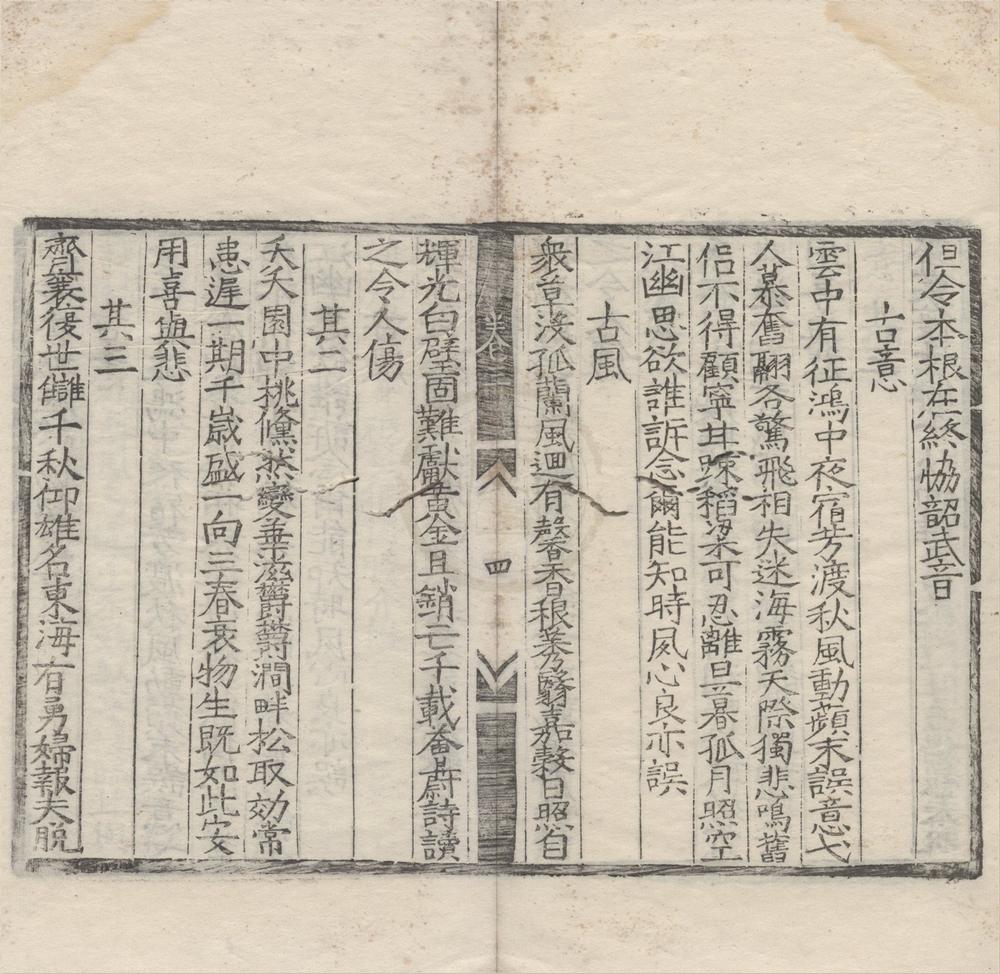 但令本根在終協韶武音
古意
雲中有征鴻中夜宿芳渡秋風動蘋末誤意弋
人慕奮翮各驚飛相失迷海霧天際獨悲鳴舊
侶不得顧寧甘踈稻粱可忍離旦暮孤月照空
江幽思欲誰訴念爾能知時夙心良亦誤
古風
衆草沒孤蘭風迴有馨香稂莠翳嘉穀日照自
輝光白璧固難獻黃金且銷亡千載奩蔚詩讀
之令人傷
其二
夭夭園中桃儵然變華滋鬱鬱澗畔松取効常
患遲一期千歲盛一向三春衰物生既如此安
用喜與悲
其三
齊襄復世讎千秋仰雄名東海有勇婦報夫脫
卷
四